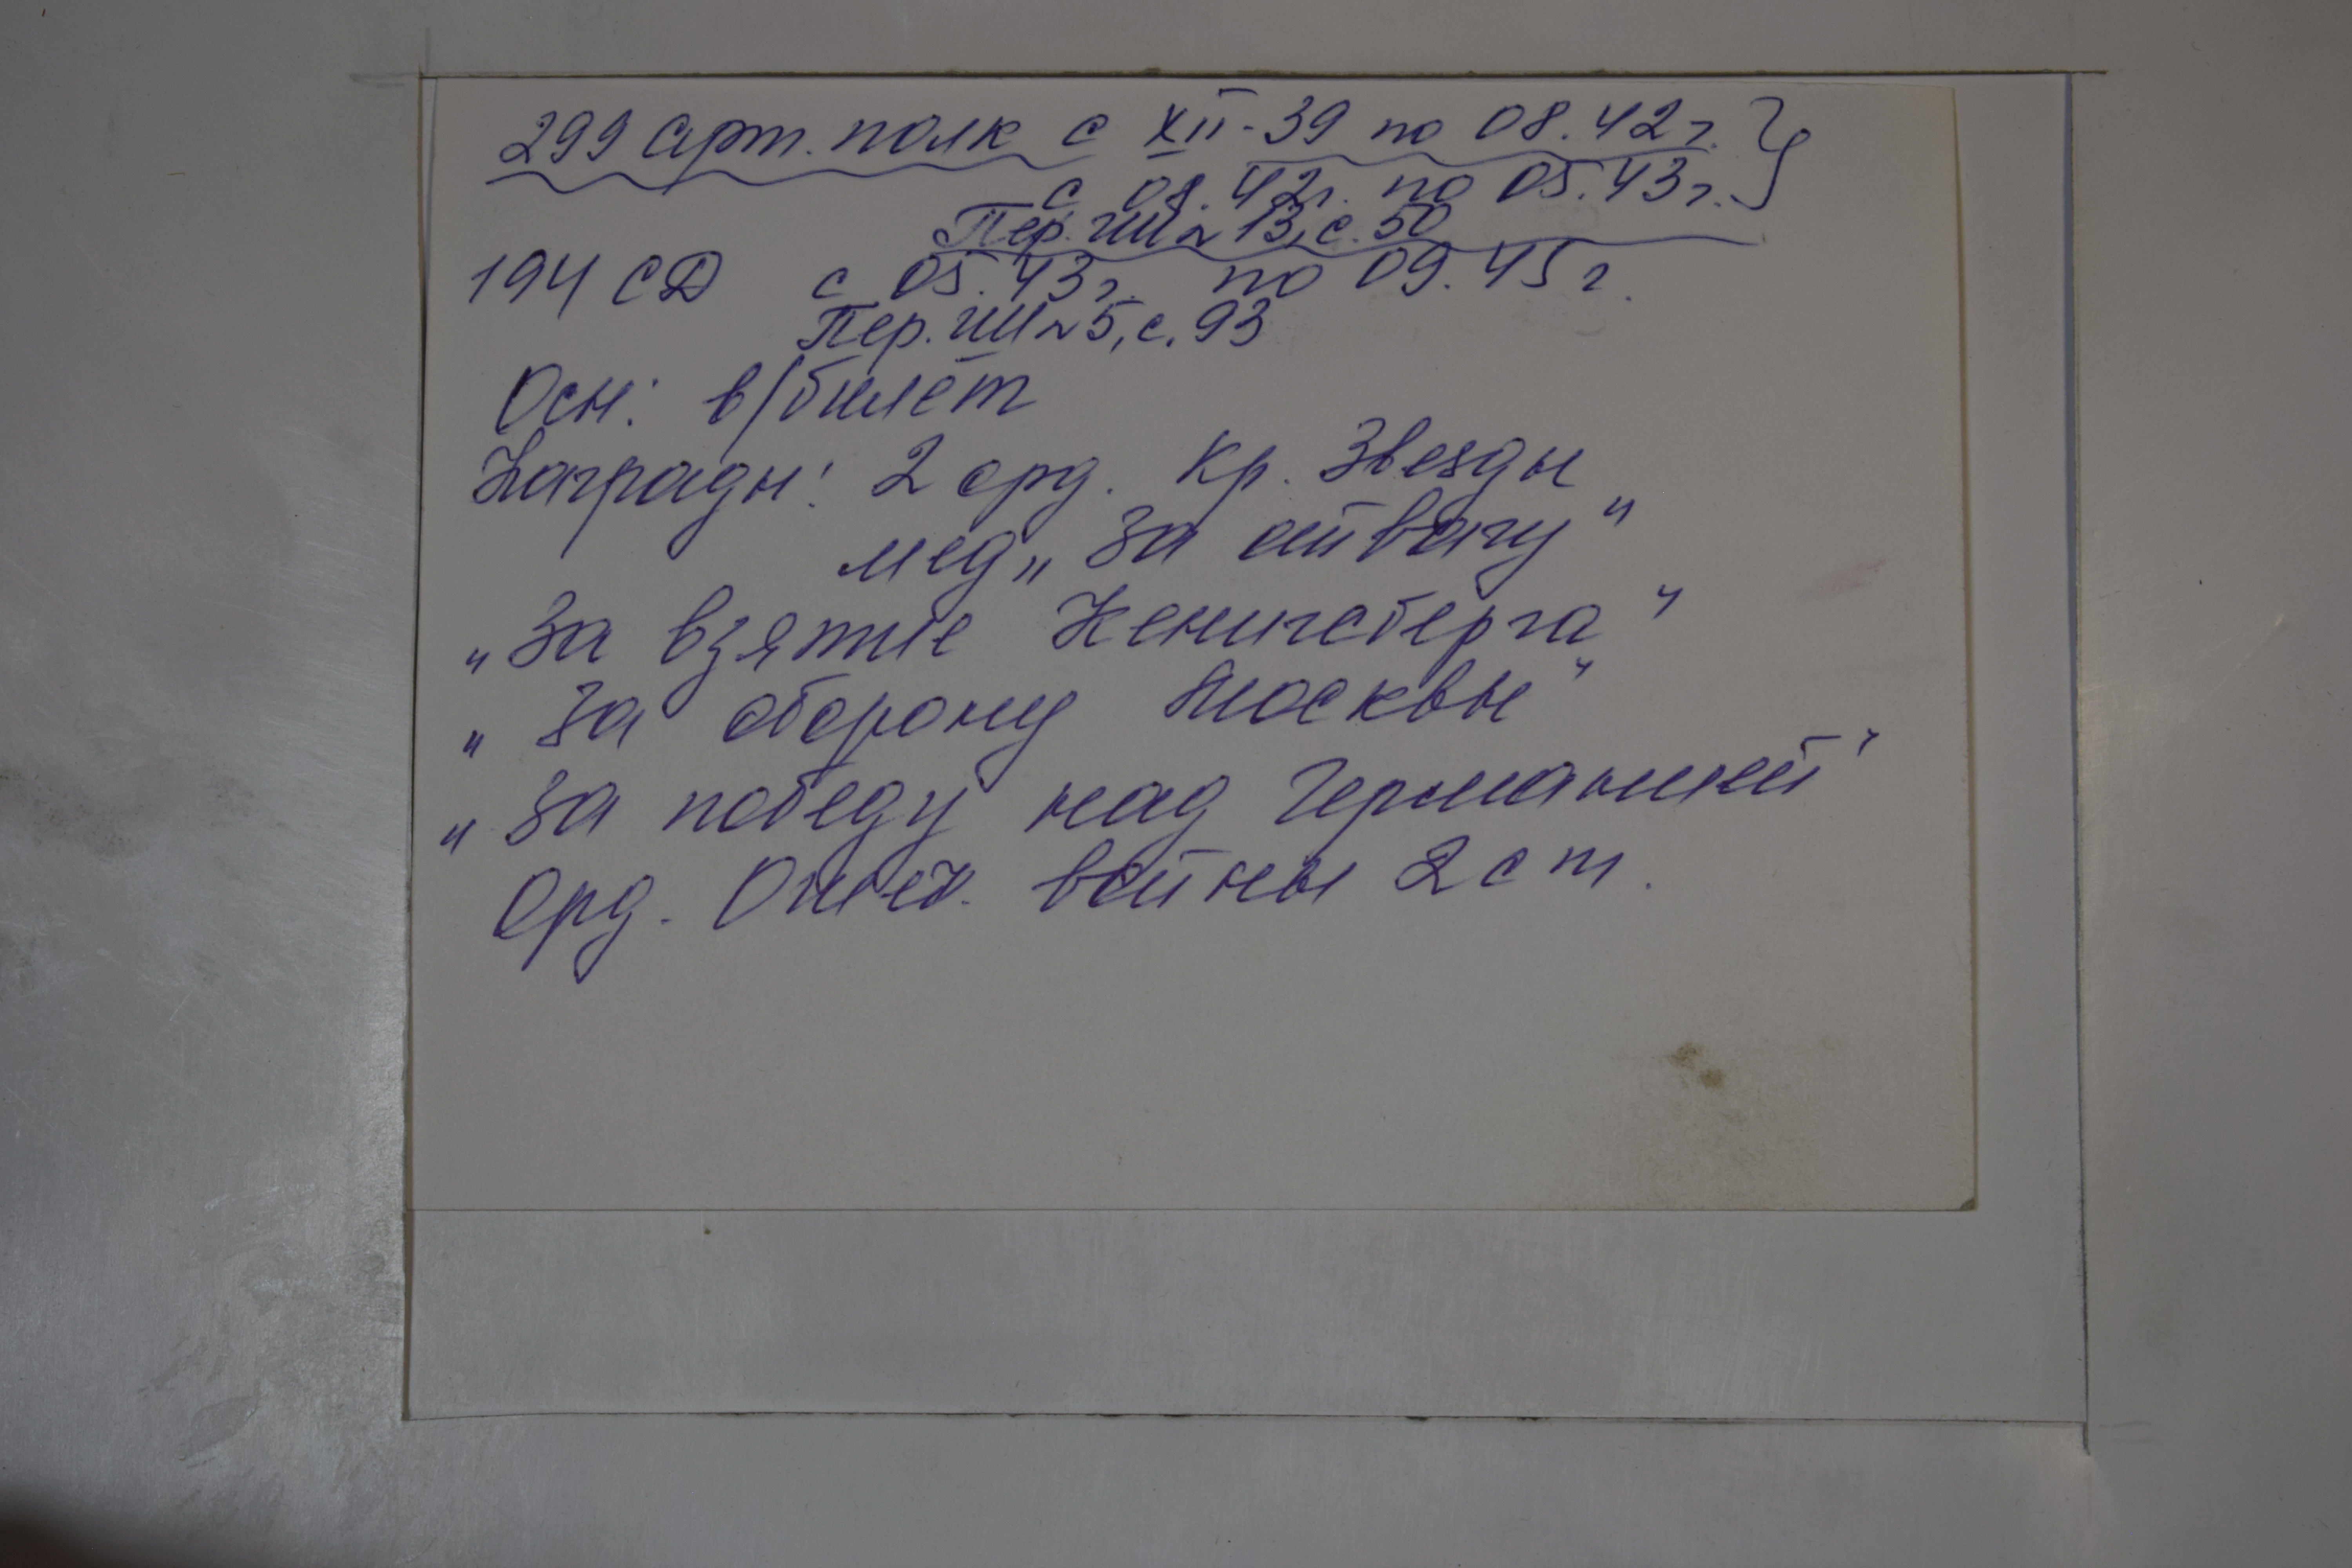 299 арт. полк с XII-39 по 08.42 г.
с 08.42 г. по 05.43 г.
Пер. ГШ N 13, с. 50
194 СД с 05.43 г. по 09.45 г.
Пер. ГШ N 5, с. 93
Осн: в/билет
Награды: 2 орд. Кр. Звезды
мед „За отвагу"
„За взятие Кенигсберга"
„За оборону Москвы"
„За победу над Германией"
Орд. Отеч. войны 2 ст.